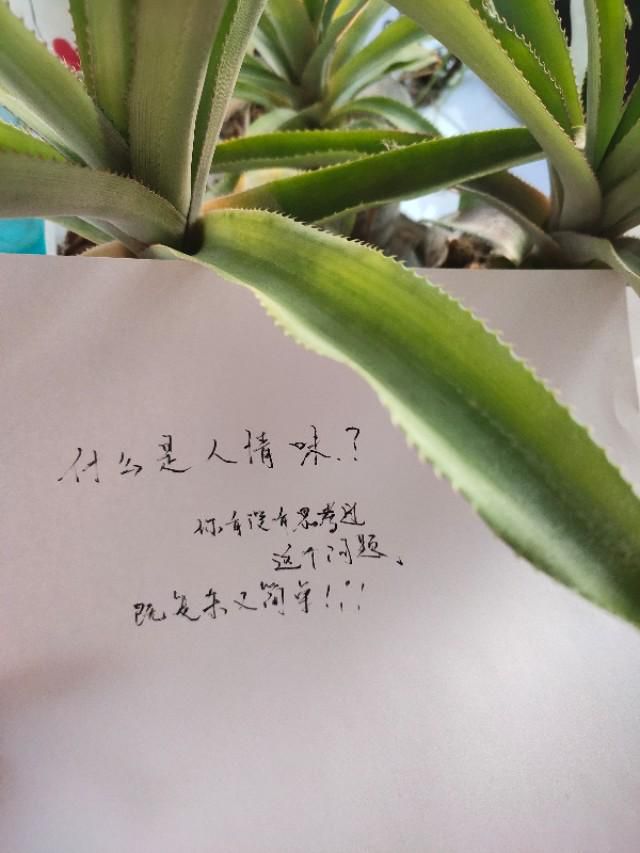 什么是人情味？
你有没有思考过
这个问题、
既复杂又简单！！！